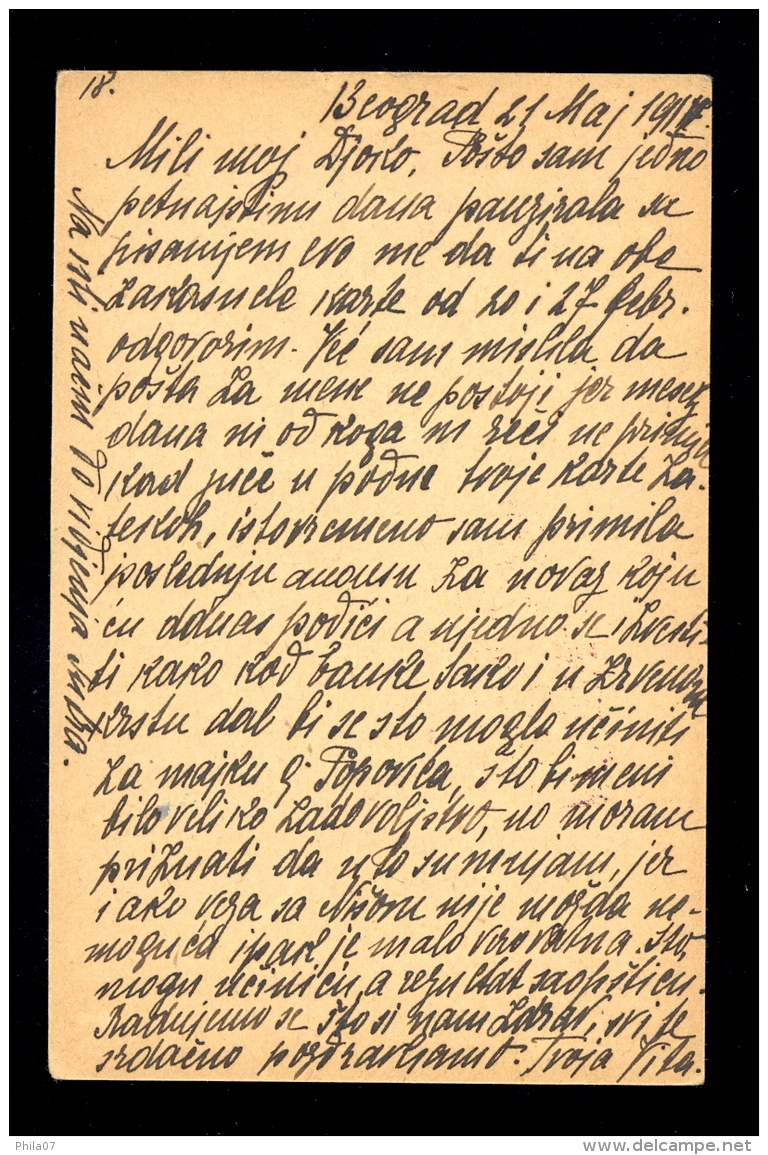 18.
Beograd 21 Maj 191
Mili moj Djoko, Pošto sam jedno
petnajstinu dana pauzirala sa
pisanijem evo me da ti na obe
zakasnele karte od 20 i 27 febr.
odgovorim. Već sam mislila da
pošta za mene ne postoji jer mesec
dana ni od koga ni reči ne primju
kad juče u podne tvoje karte za-
tekoh, istovremeno sam primila
poslednju za novaz koju
ću danas podići a ujedno se izvesti-
ti kako kod banke tako i u Crvenom
krstu dal bi se sto moglo učiniti
za majku g. Popovića, što bi meni
bilo veliko zadovoljstvo, no moram
priznati da u to sumnjam, jer
i ako veza sa Nišom nije možda ne-
moguća ipak je malo verovatna. Što
mogu učiniću a rezultat saopštiću.
Radujemo se što si nam zdrav, svi te
srdačno pozdravljamo. Tvoja Vita.
Na
Phila07
delcampe.net